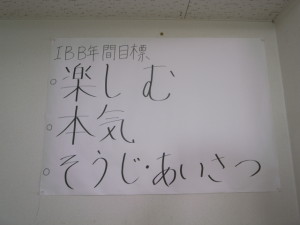 IBB年間目標
○楽しむ
○本気
○そうじ・あいさつ